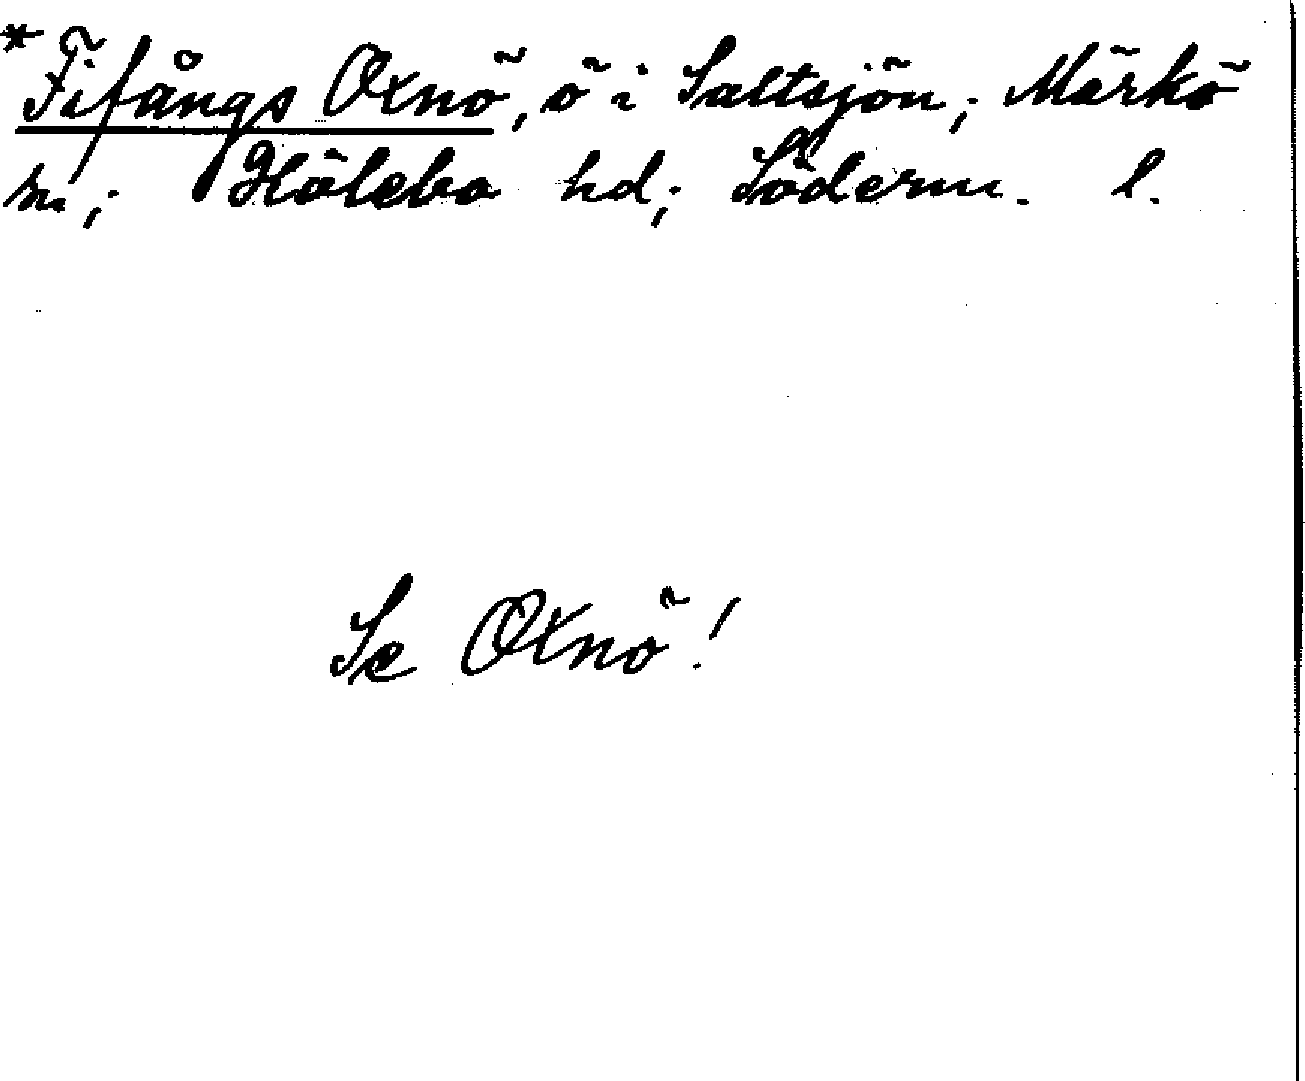 * Fifångs Oxnö, ö i Saltsjön; Mörkö
sn; Hölebo hd; Söderm. l.
Se Oxnö!